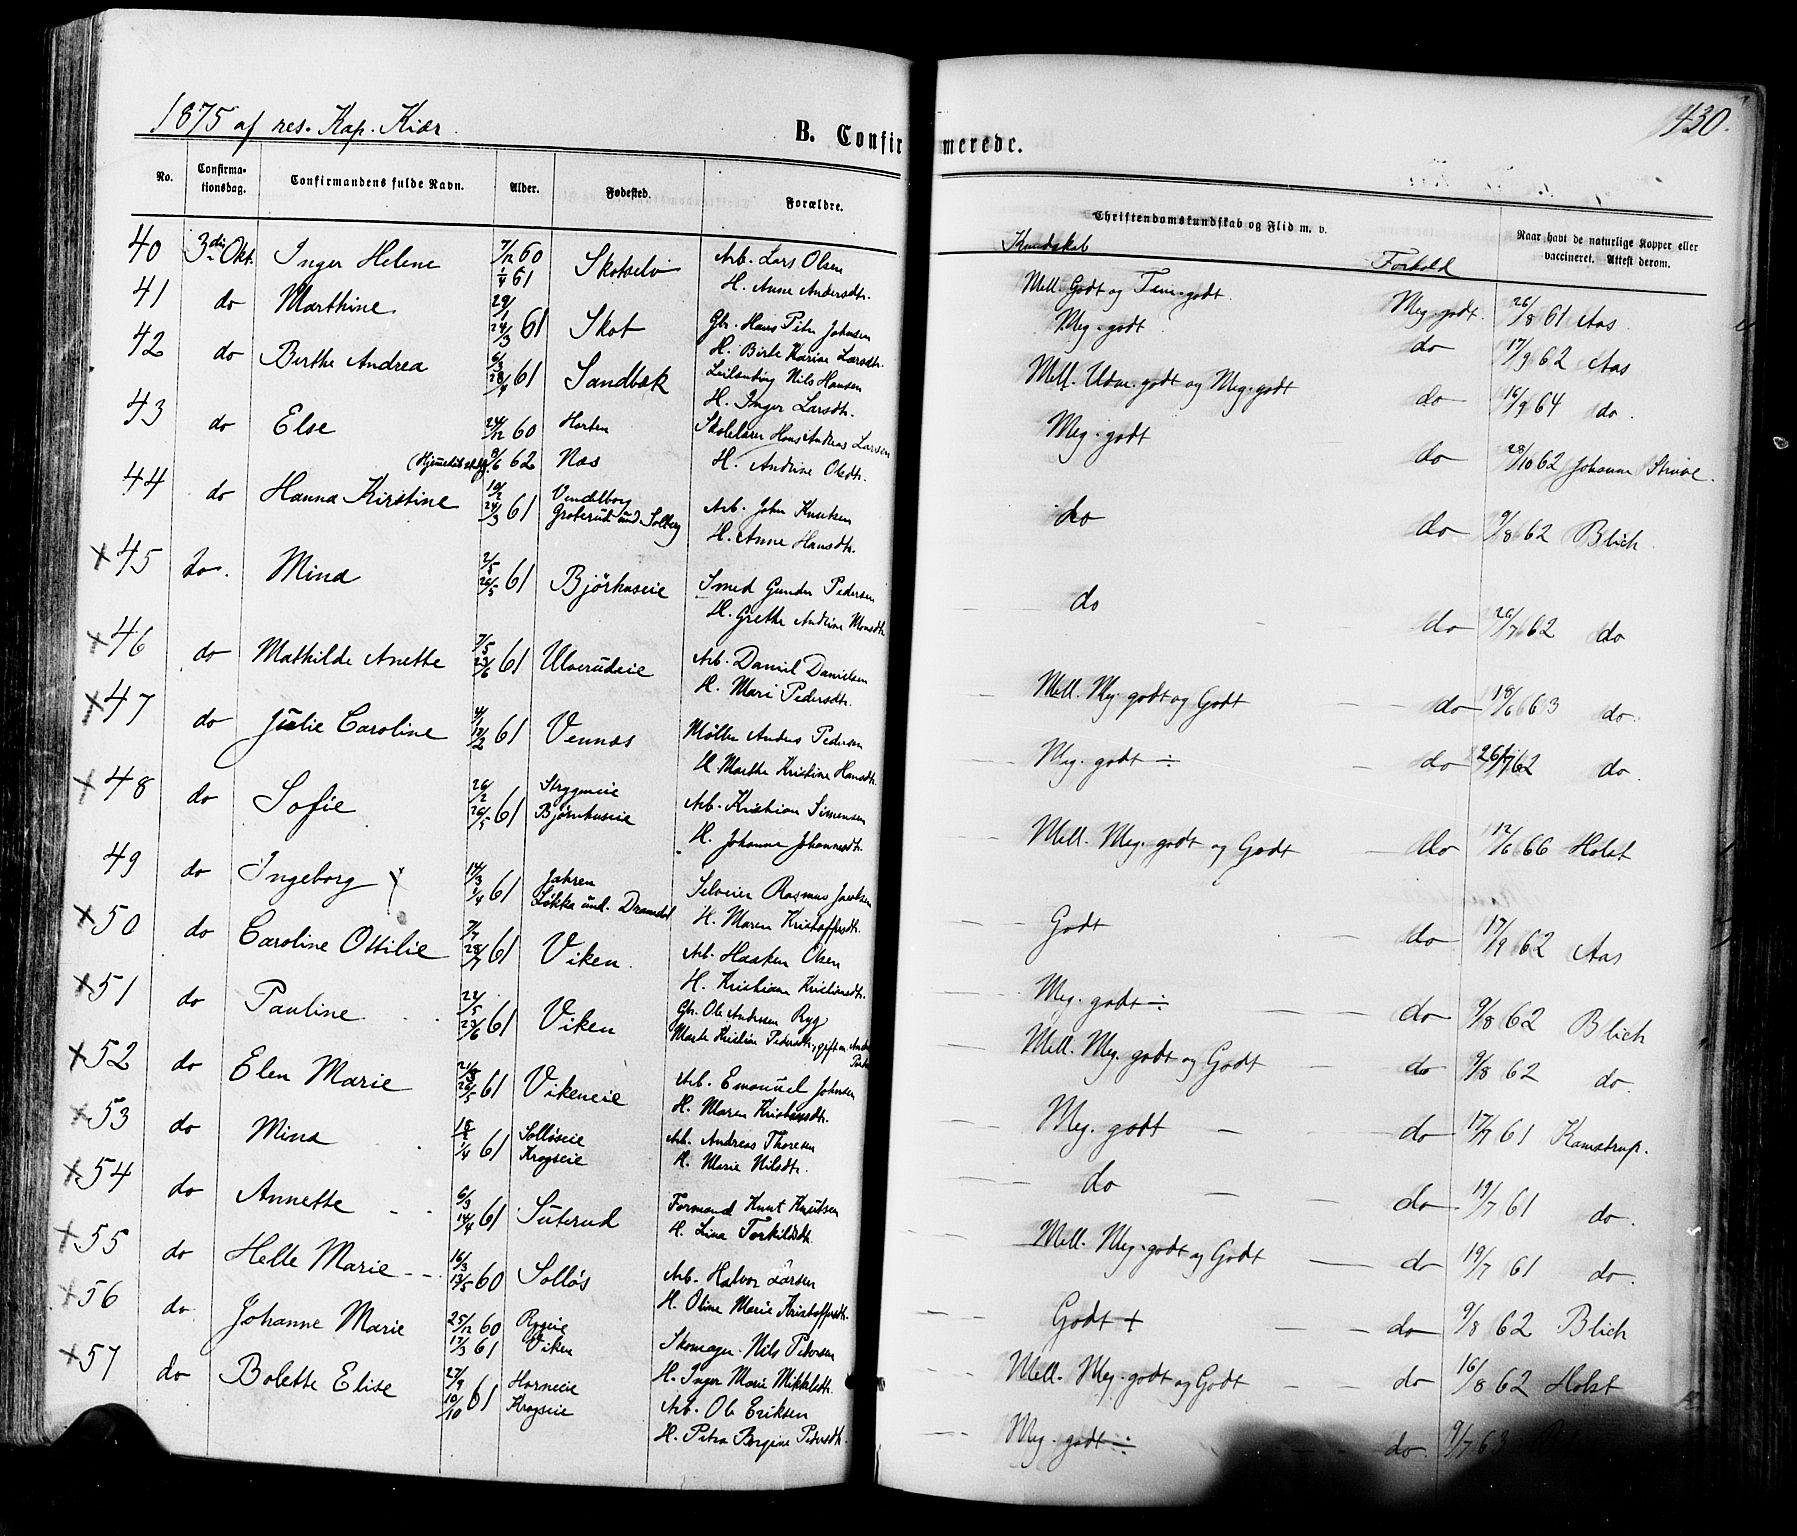 1875 af res. Kap. Kiær.
430.
B. Confirmerede.
No. Confirmationsdag. Confirmandens fulde Navn. Alder. Fødested. Forældre. Christendomskundskab og Flid m. v. Naar havt de naturlige Kopper eller vaccineret. Attest derom.
Kundskab Forhold
40 3die Okt. Inger Helene 7/12 60 1/4 61 Skotselv Arb. Lars Olsen Mell. Godt og Tem. godt. Meg. godt. 26/8 61 Aas.
H. Anne Andersdtr.
41 do Marthine 29/1 24/3 61 Skot Gbr. Hans Peter Johnsen Meg. godt do 17/9 62 Aas
H. Birte Karine Larsdtr.
42 do Birthe Andrea 6/3 28/4 61 Sandbæk Leilending Nils Hansen Mell. Udm. godt og Meg. godt do 16/9 64 do.
H. Inger Larsdtr.
43 do Else 24/12 60 Horten Skolelærer Hans Andreas Larsen Meg. godt do 28/10 62 Johanne
(Hjemmedøbt 8/6 62 Næs H. Andrine Olsdtr.
44 do Hanna Kirstine 10/2 24/3 61 Vendelborg Arb. John Knutsen do do 9/8 62 Blich.
Groterud und. Solberg H. Anne Hansdtr.
× 45 do. Mina 2/5 26/5 61 Bjørhuseie Smed Gunder Pedersen do do 26/7 62 do
H. Grethe Andrine Monsdtr.
× 46 do Mathilde Anette 7/5 23/6 61 Ulverudeie Arb. Daniel Danielsen Mell. Meg. godt og Godt do 18/6 63 do.
H. Mari Pedersdtr.
× 47 do Julie Caroline 4/1 12/2 61 Vennæs Møller Anders Pedersen Meg. godt ÷ do 26/7 62 do.
H. Marthe Kristine Hansdtr.
× 48 do Sofie 26/2 26/5 61 Stryganeie Arb. Kristian Simensen Mell. Meg. godt og Godt do 12/6 66 Holst
Bjørnhuseie H. Johanne Johannesdtr.
49 do Ingeborg 14/3 1/4 61 Jahren Selveier Rasmus Jacobsen Godt do 17/9 62 Aas
Løkka und. Dramdal H. Maren Kristoffersdtr.
× 50 do Caroline Ottilie 7/7 28/7 61 Viken. Arb. Haaken Olsen Meg. godt ÷ do 9/8 62 Blich
H. Kristiane Kristiansdtr.
× 51 do Pauline 22/5 23/6 61 Viken Gbr. Ole Andersen Ryg Mell. Meg. godt og Godt do 9/8 62 do.
Marte Kristine Pedersdtr., gift m.
× 52 do Elen Marie 21/3 26/5 61 Vikeneie Arb. Emanuel Johnsen Meg. godt do 17/7 61 Kamstrup.
H. Maren Kristiansdtr.
× 53 do Mina 18/2 1/4 61 Solløseie Arb. Andreas Thoresen do do 19/7 61 do.
Krogseie H. Marie Nilsdtr.
× 54 do Annette 6/3 14/4 61 Suterud Formand Knut Knutsen Mell. Meg. godt og Godt do 19/7 61 do.
H. Lina Torkildsdtr.
× 55 do Helle Marie 16/3 13/5 60 Solløs Arb. Halvor Larsen Godt + do 9/8 62 Blich
H. Oline Marie Kristoffersdtr.
× 56 do Johanne Marie 25/12 60 Rygeie Skomager Nils Petersen Mell. Meg. godt og Godt do 16/8 62 Holst
17/3 61 Viken H. Inger Marie Mikkelsdtr.
× 57 do Bolette Elise 27/9 10/10 61 Horneeie Arb. Ole Eriksen Meg. godt ÷ do. 9/7 63
Krogseie H. Petra Bergine Pedersdtr.